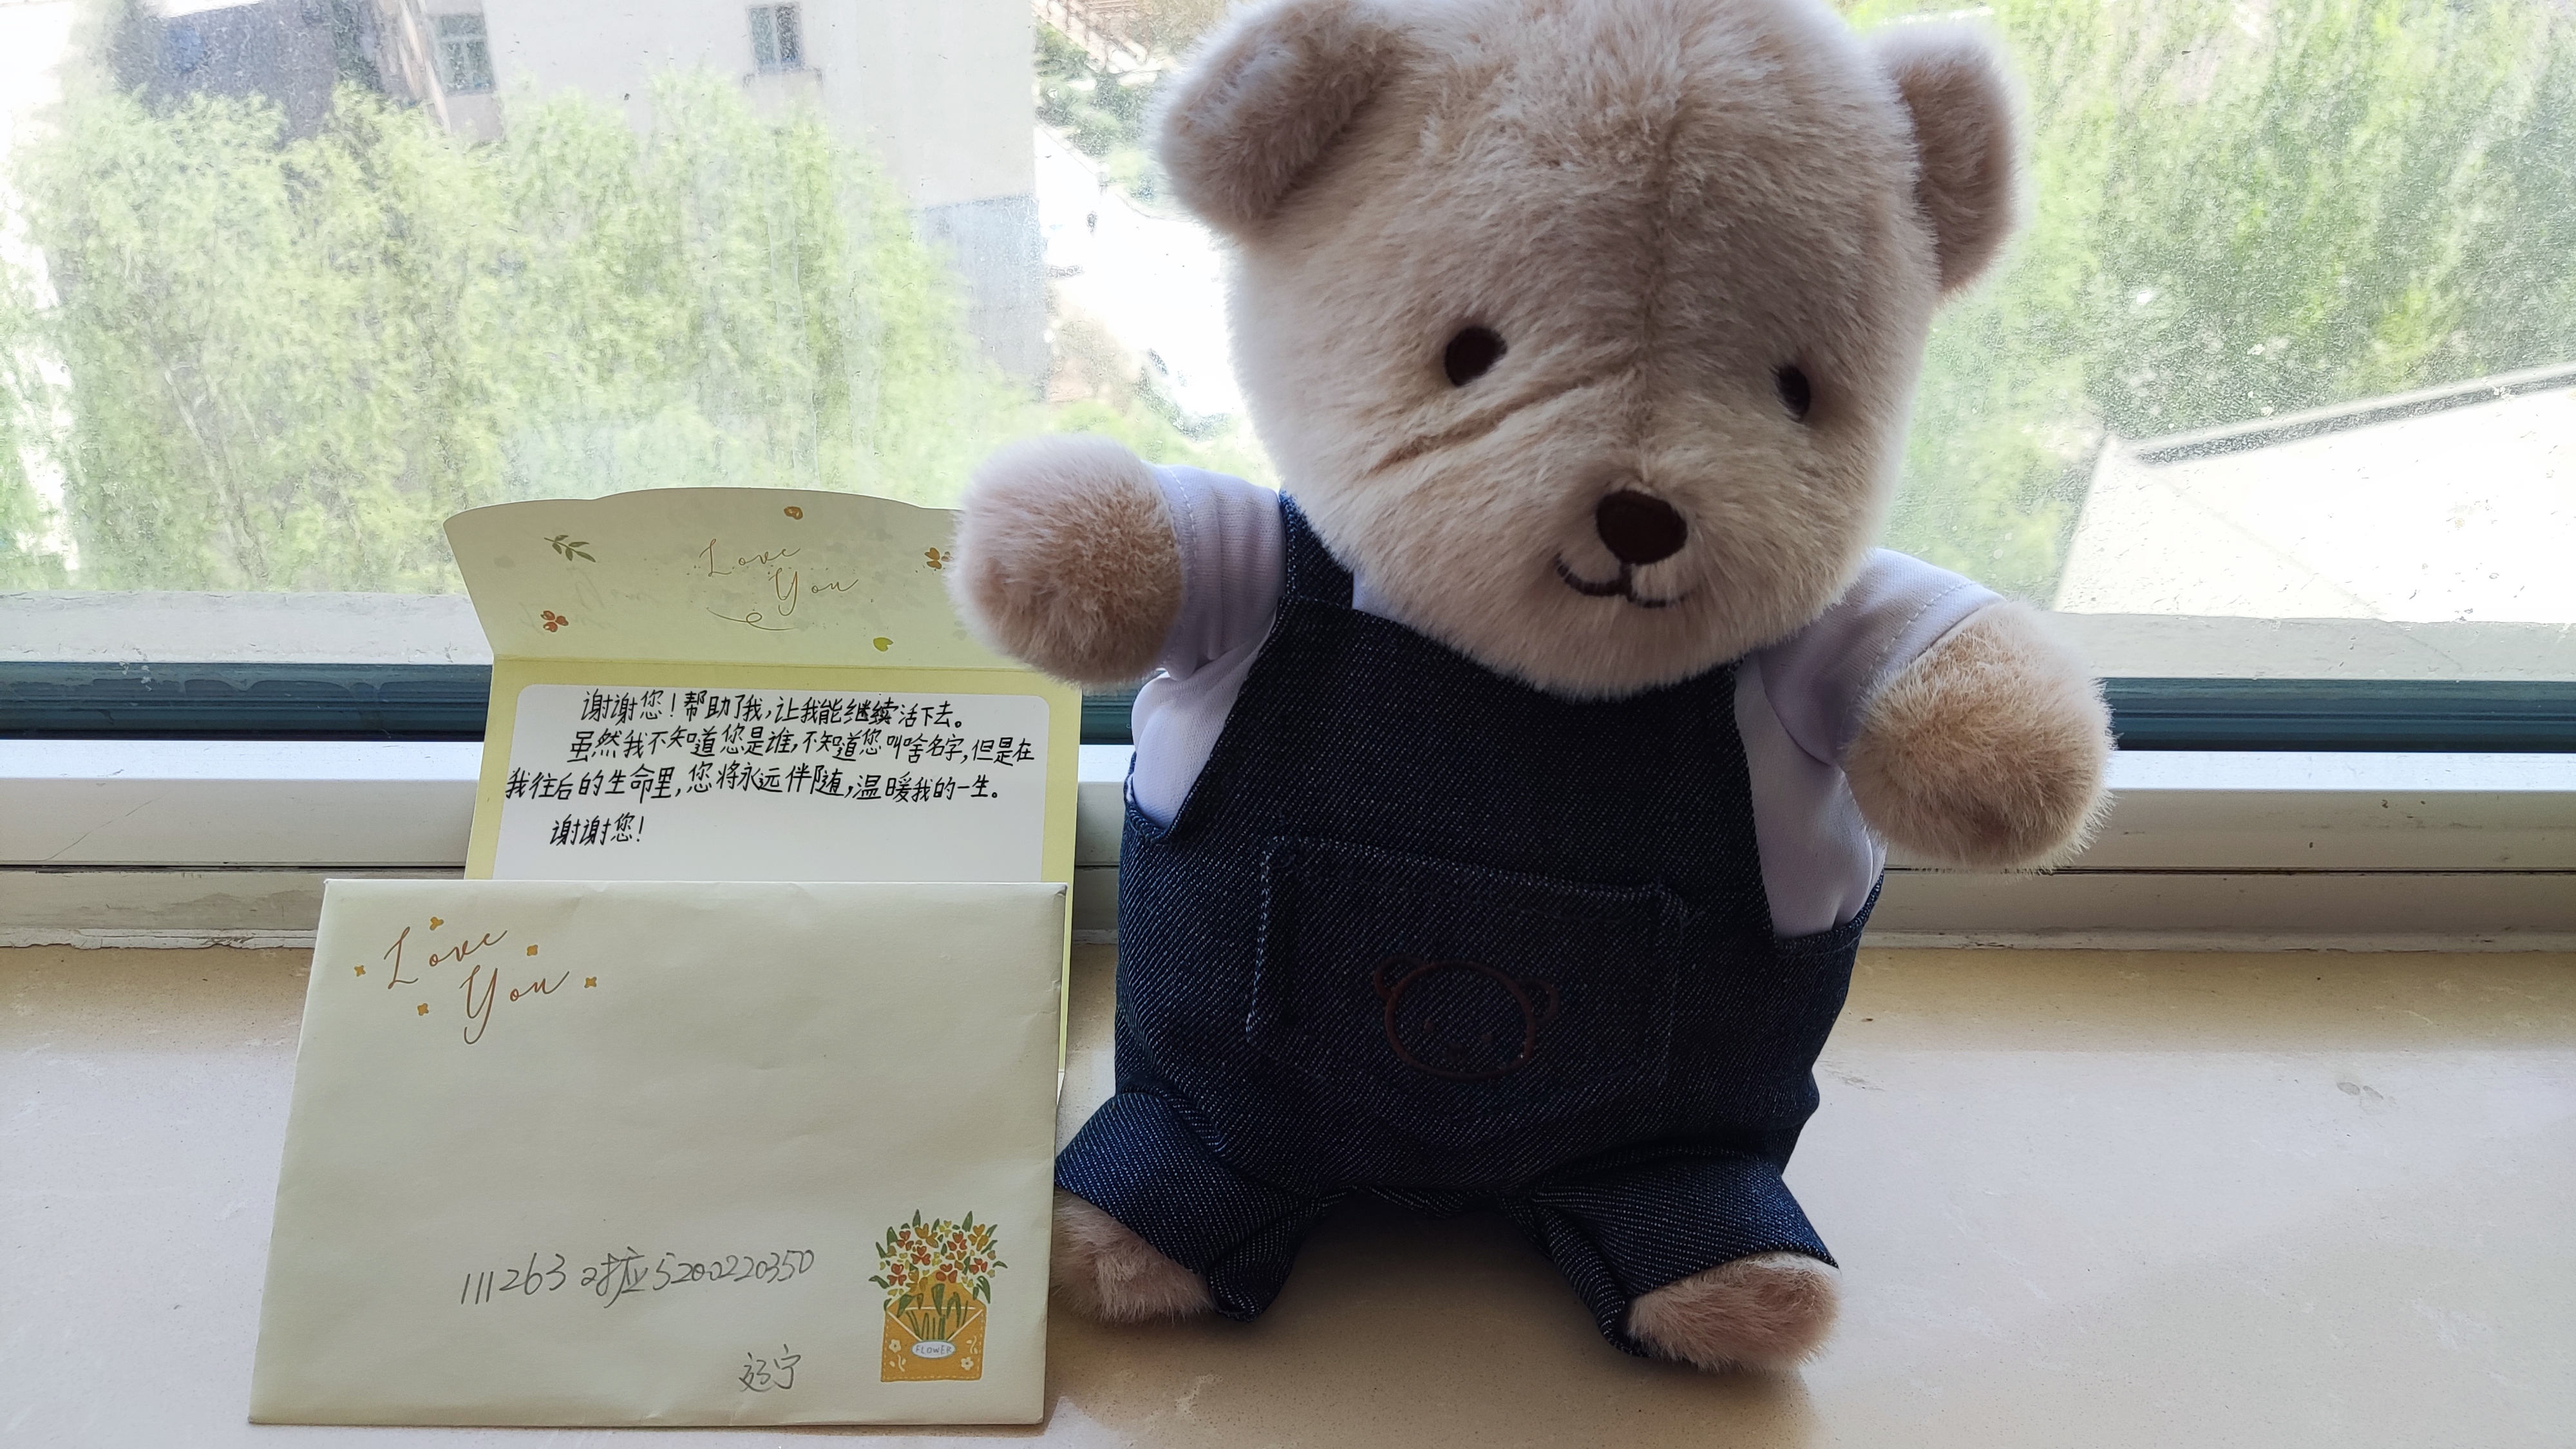 Love
You
谢谢您!帮助了我,让我能继续活下去。
虽然我不知道您是谁,不知道您叫啥名字,但是在
我往后的生命里,您将永远伴随,温暖我的一生。
谢谢您!
Love
You
111263对应5200220350
FLOWER
辽宁